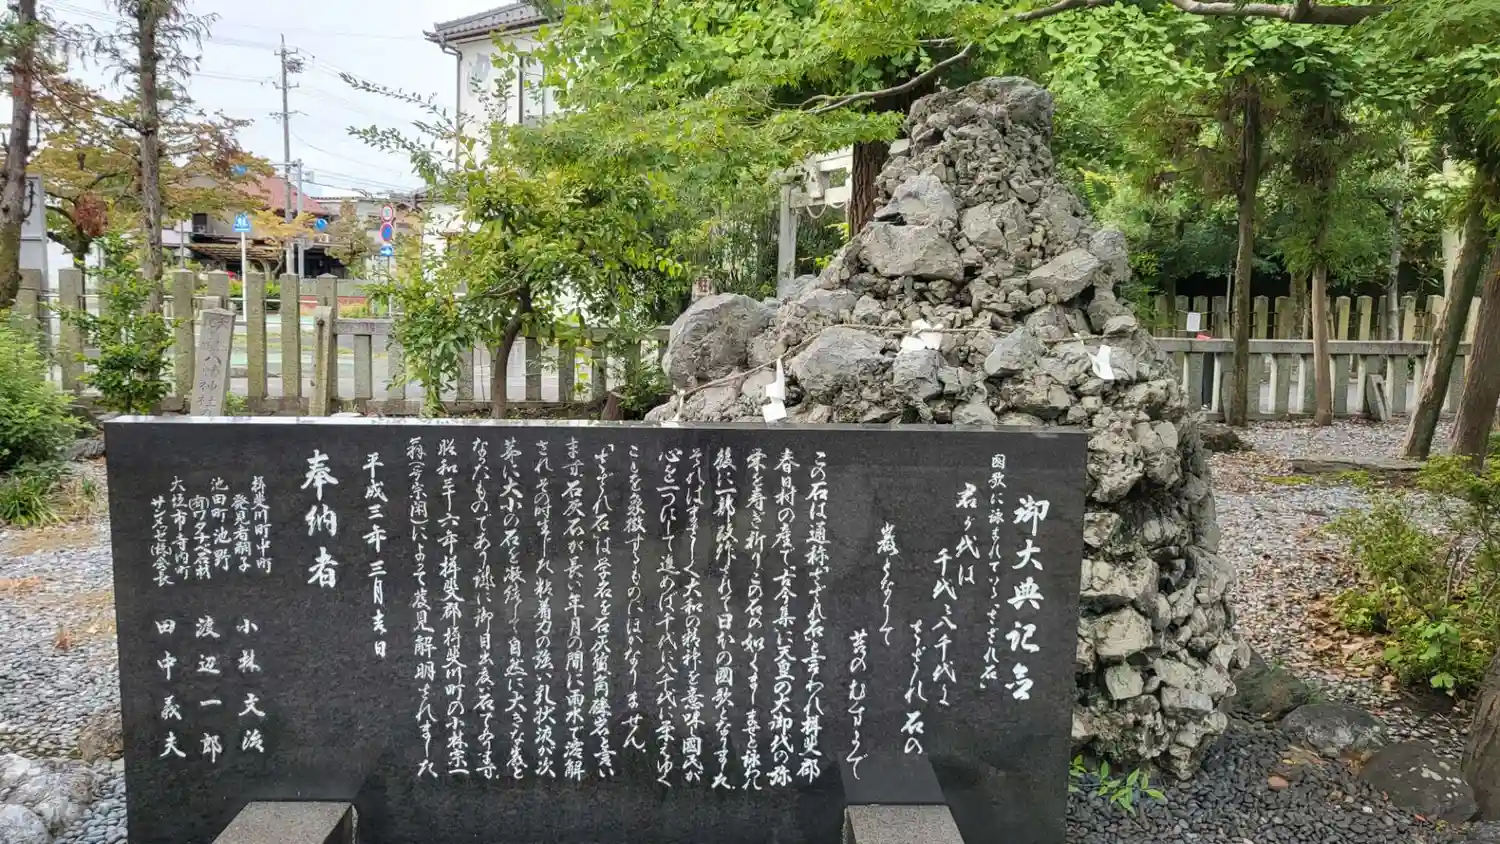 御大典記念
国歌に詠まれている「さざれ石」
君が代は
千代に八千代に
さざれ石の
巌となりて
苔のむすまで
この石は通称さざれ石と言われ揖斐郡
春日村の産で古今集に天皇の大御代の弥
栄を寿ぎ祈りこの石の如くましませと詠われ
後に一部改訂されて日本の国歌となりました
それはまさしく大和の精神を意味し国民が
心を一つにして進めば千代に八千代に栄えゆく
ことを象徴するものにほかなりません
「さざれ石」は学名を石灰質角礫岩と言い
ます石灰石が長い年月の間に雨水で溶解
され、その時生じた粘着力の強い乳状液が次
第に大小の石を凝結して自然に大きな巌と
なったものであり誠に御目出度い石であります
昭和三十六年揖斐郡揖斐川町の小林宗一
によって発見解明されました
平成三年三月吉日
奉納者
揖斐川町中町
発見者嗣子
小林文治
池田町池野
渡辺一郎
大垣市寺内町
サンヨセ 会長
田中義夫
八幡神社